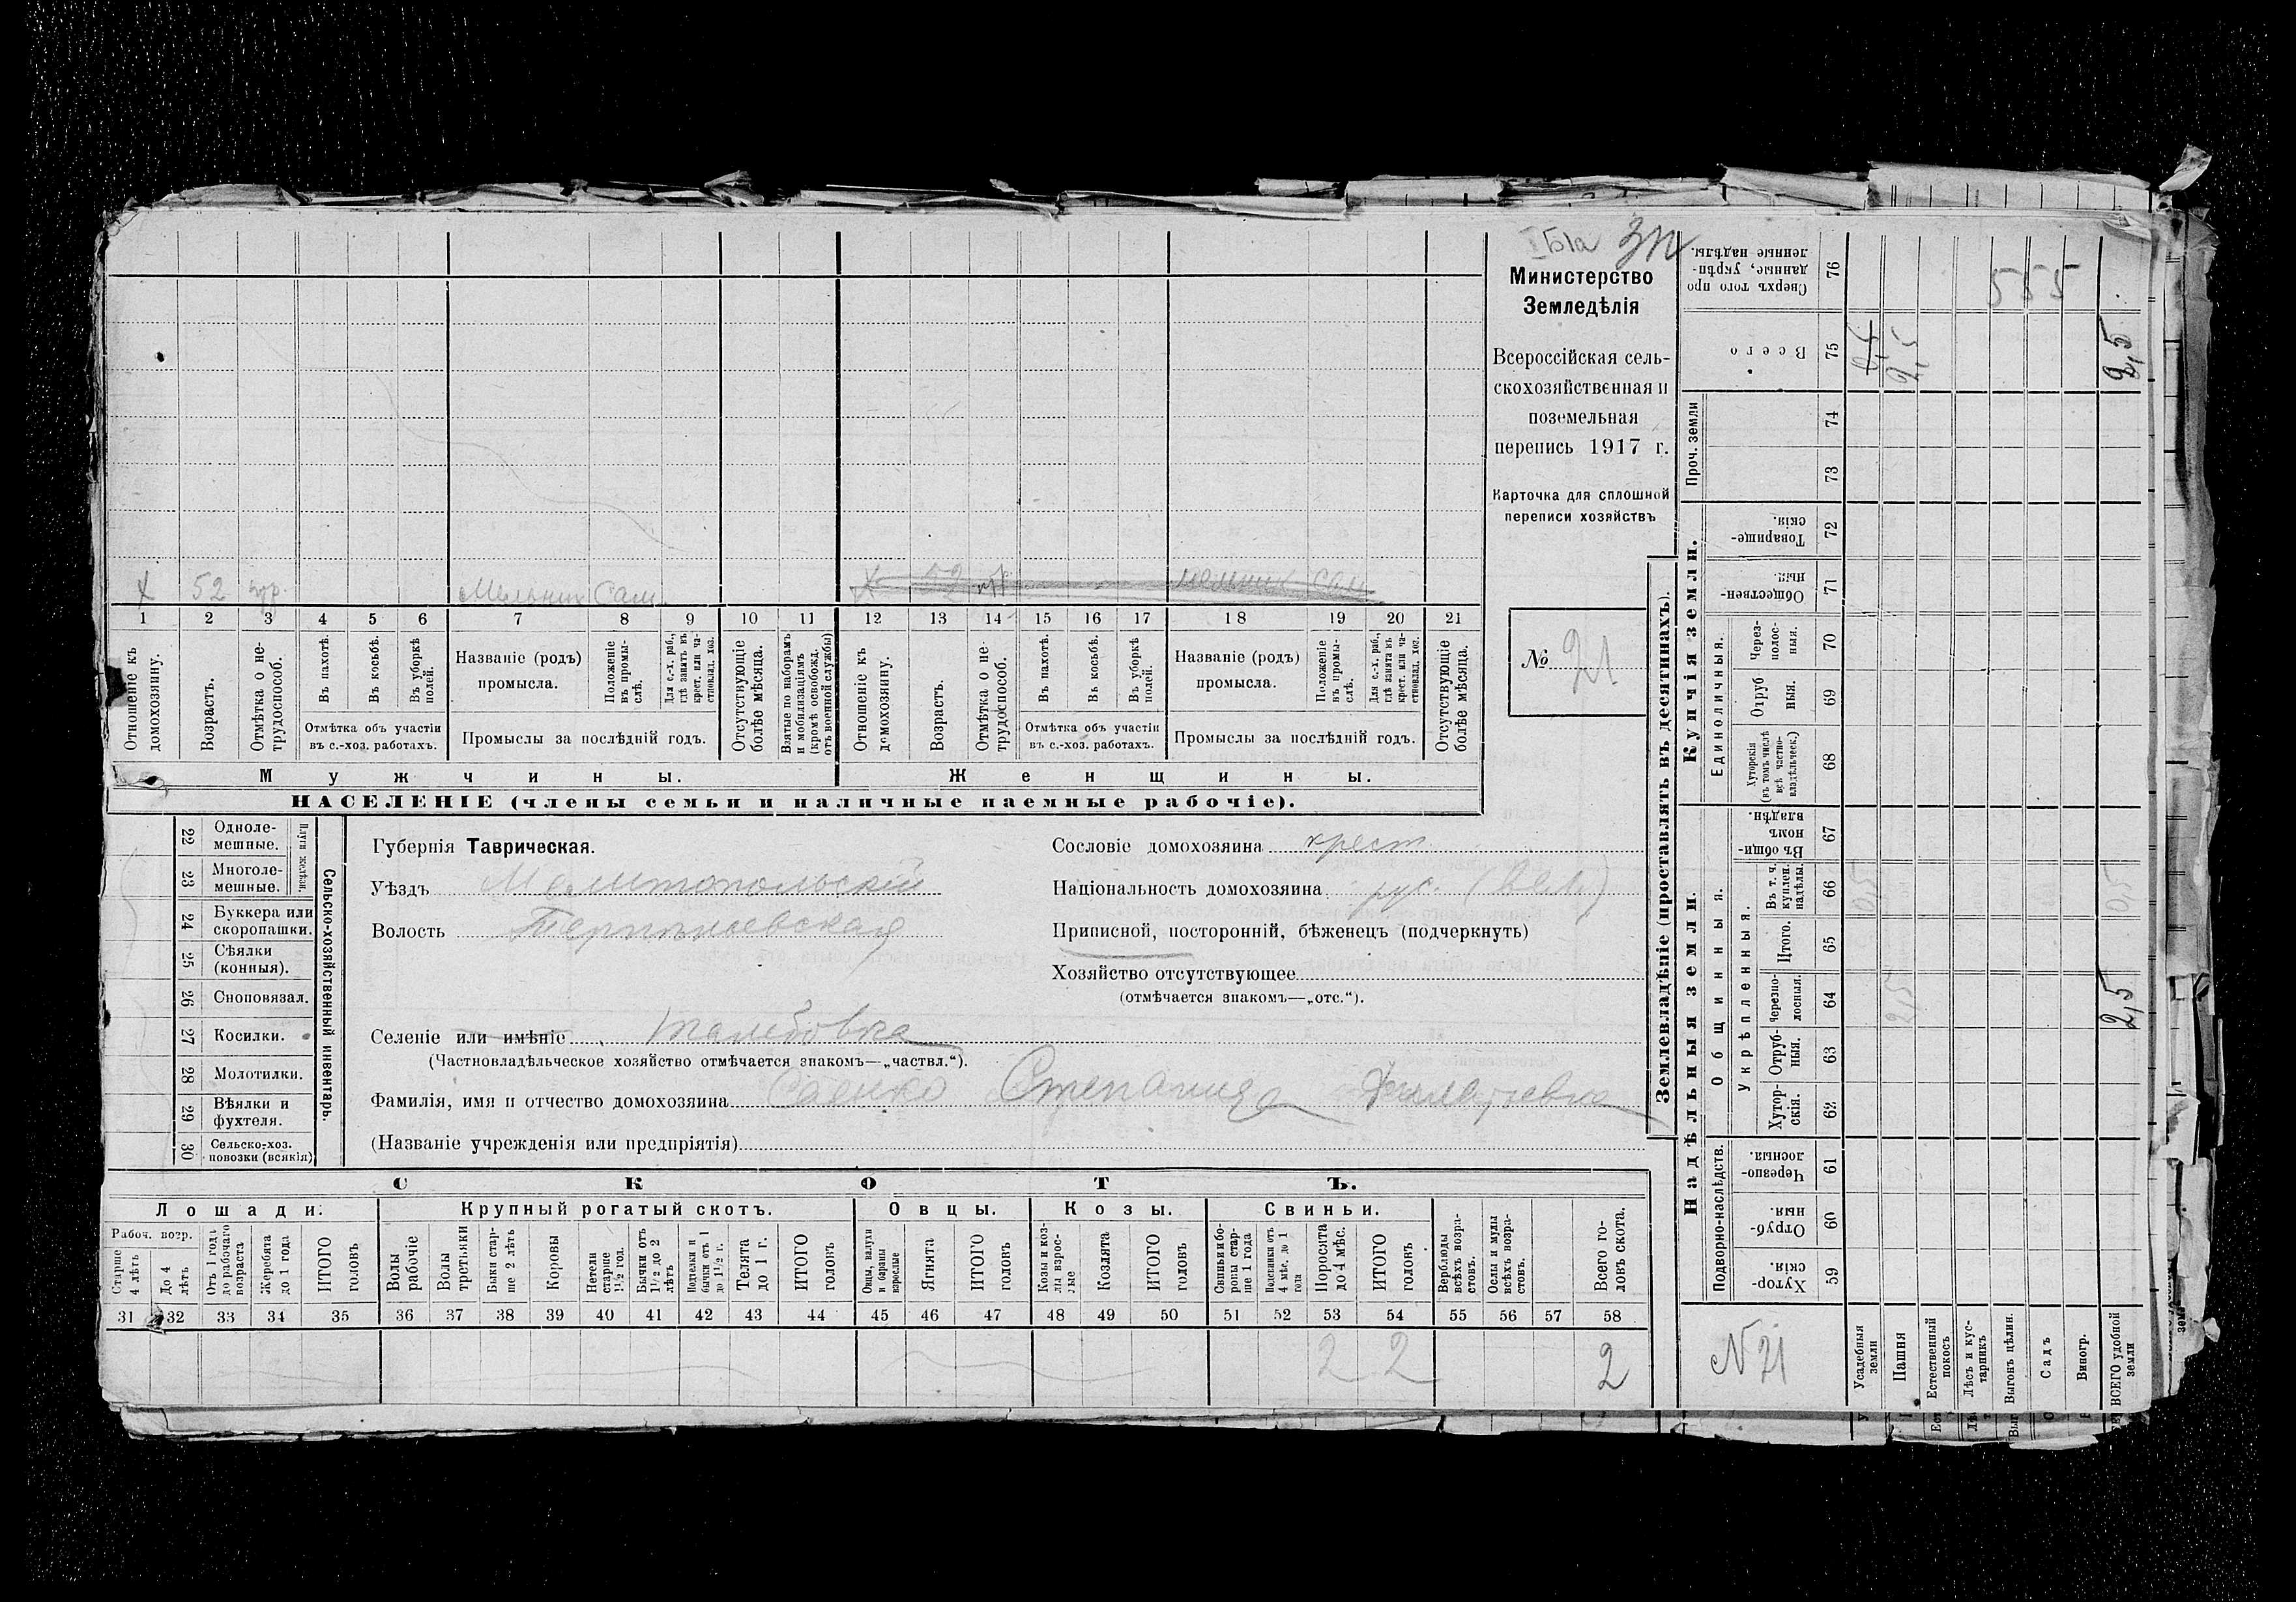 IБ1а Зп
Министерство
Земледѣлія
Всероссійская сель-
скохозяйственная и
поземельная
перепись 1917 г.
Карточка для сплошной
переписи хозяйствъ
№ 21
х 52 Мельник Сам.
х 52 мельник сам
1 2 3 4 5 6 7 8 9 10 11 12 13 14 15 16 17 18 19 20 21
Отношеніе къ домохозяину.
Возрастъ.
Отмѣтка о не-трудоспособ.
Въ пахотѣ.
Въ косьбѣ.
Въ уборкѣ полей.
Отмѣтка объ участіи
въ с.-хоз. работахъ.
Названіе (родъ)
промысла.
Положеніе въ промы-слѣ.
Для с.-х. раб., гдѣ занятъ въ крест. или ча-стновлад. хоз.
Промыслы за послѣдній годъ.
Отсутствующіе болѣе мѣсяца.
Взятые по наборамъ и мобилизаціямъ (кромѣ освобожд. отъ военной службы)
Отношеніе къ домохозяину.
Возрастъ.
Отмѣтка о не-трудоспособ.
Въ пахотѣ.
Въ косьбѣ.
Въ уборкѣ полей.
Отмѣтка объ участіи
въ с.-хоз. работахъ.
Названіе (родъ)
промысла.
Положеніе въ промы-слѣ.
Для с.-х. раб., гдѣ занята въ крест. или ча-стновлад. хоз.
Промыслы за послѣдній годъ.
Отсутствующіе болѣе мѣсяца.
Мужчины. Женщины.
НАСЕЛЕНІЕ (члены семьи и наличные наемные рабочіе).
Сельско-хозяйственный инвентарь.
Плуги желѣзн.
22 Одноле-мешные.
23 Многоле-мешные.
24 Буккера или скоропашки.
25 Сѣялки (конныя).
26 Сноповязал.
27 Косилки.
28 Молотилки.
29 Вѣялки и фухтеля.
30 Сельско-хоз. повозки (всякія)
Губернія Таврическая.
Уѣздъ Мелитопольскій
Волость Терпѣньевская
Сословіе домохозяина крест.
Національность домохозяина рус. (вел.)
Приписной, посторонній, бѣженецъ (подчеркнуть)
Хозяйство отсутствующее
(отмѣчается знакомъ—„отс.“).
Селеніе или имѣніе
(Частновладѣльческое хозяйство отмѣчается знакомъ—„частвл.“).
Фамилія, имя и отчество домохозяина Саенко Степанида Филатьевна
(Названіе учрежденія или предпріятія)
СКОТЪ.
Лошади. Крупный рогатый скотъ. Овцы. Козы. Свиньи.
Рабоч. возр.
Старше 4 лѣтъ
До 4 лѣтъ
Отъ 1 года до рабочаго возраста
Жеребята до 1 года
ИТОГО головъ
Волы рабочіе
Волы третьяки
Быки стар-ше 2 лѣтъ
Коровы
Нетели старше 1½ год.
Бычки отъ 1½ до 2 лѣтъ
Подтелки и бычки отъ 1 до 1½ г.
Телята до 1 г.
ИТОГО головъ
Овцы, валухи и бараны взрослые
Ягнята
ИТОГО головъ
Козы и коз-лы взрос-лые
Козлята
ИТОГО головъ
Свиньи и бо-ровы стар-ше 1 года
Подсвинки отъ 4 мѣс. до 1 года
Поросята до 4 мѣс.
ИТОГО головъ
Верблюды всѣхъ возра-стовъ.
Ослы и мулы всѣхъ возра-стовъ.
Всего го-ловъ скота.
31 32 33 34 35 36 37 38 39 40 41 42 43 44 45 46 47 48 49 50 51 52 53 54 55 56 57 58
2 2 2
Землевладѣніе (проставлять въ десятинахъ).
Купчія земли.
Надѣльныя земли.
Сверхъ того про данные, укрѣп-ленные надѣлы. 76
Всего 75
Проч. земли
74
73
Товарище-скія. 72
Обществен-ныя. 71
Единоличныя.
Через-полос-ныя. 70
Отруб ныя. 69
Хуторскія (въ томъ числѣ всѣ частно-владѣльческ.) 68
Общинныя.
Въ общи-номъ владѣн. 67
Укрѣпленныя.
Въ т. ч. куплен. надѣлы. 66
Итого. 65
Черезпо-лосныя. 64
Отруб-ныя. 63
Хутор-скія. 62
Подворно-наслѣдств.
Черезпо-лосныя. 61
Отруб-ныя. 60
Хутор-скія. 59
555
0,5
2,5
2,5
0,5
0,5
2,5
2,5
N 21
Усадебныя земли
Пашня
Естественный покосъ
Лѣсъ и кус-тарникъ
Выгонъ цѣлин.
Садъ
Виногр.
ВСЕГО удобной земли